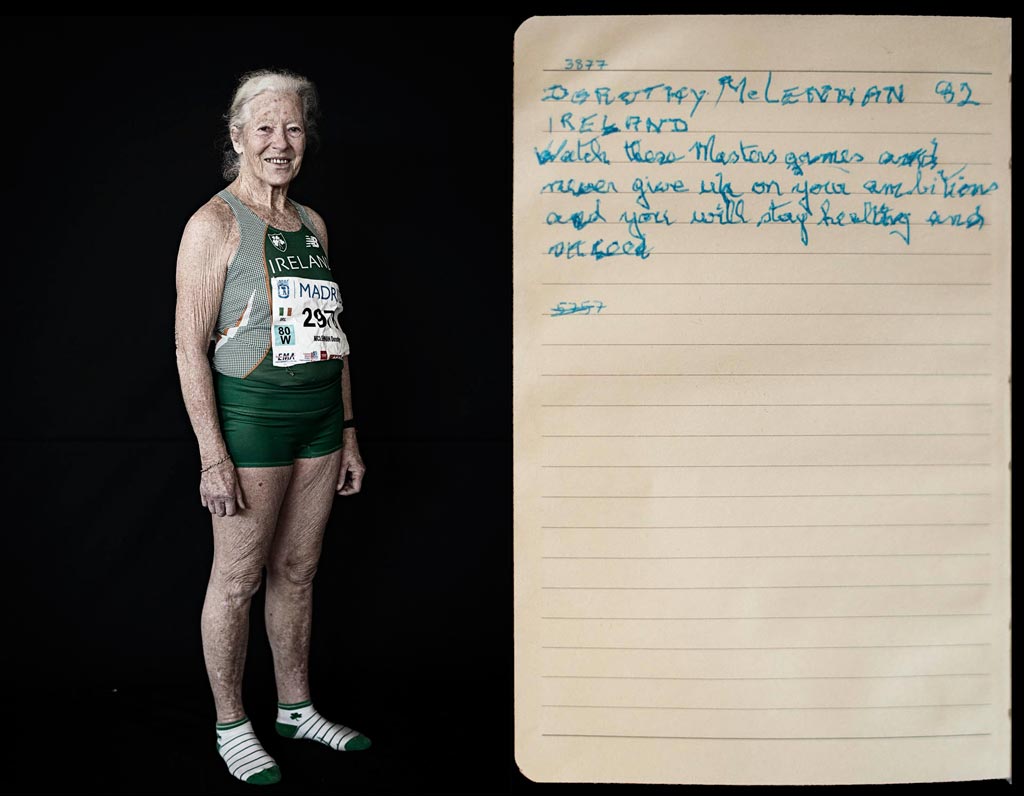 IRELAND
MADRI
297
80
W
MCLENNAN Dorothy
EMA
3877
DOROTHY McLENNAN 82
IRELAND
Watch these Masters games and
never give up on your ambitions
and you will stay healthy and
succeed
5757